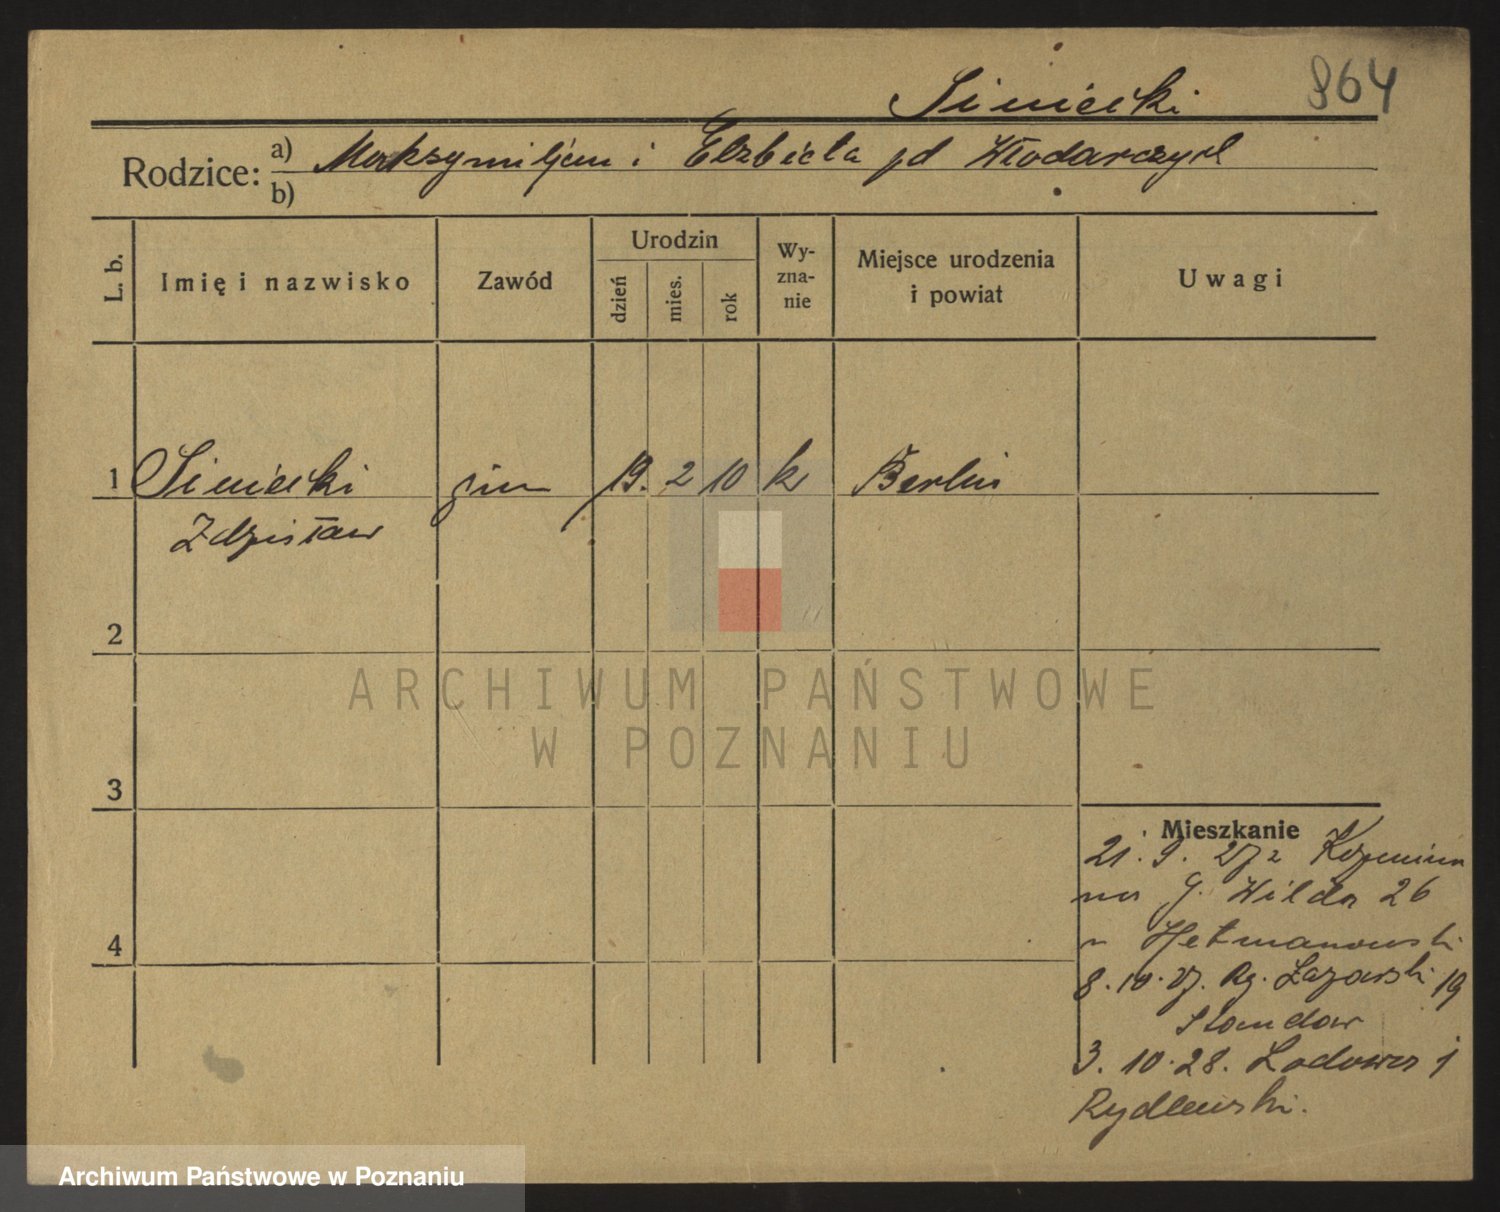 Siniecki 864
Rodzice: a) Maksymiljan i Elżbieta pd Włodarczyk
b)
L. b. Imię i nazwisko Zawód Urodzin dzień mies. rok Wy-zna-nie Miejsce urodzenia i powiat Uwagi
1 Siniecki 19. 2 10 k Berlin
Zdzisław
2
3
4
Mieszkanie
21. 9. 27 z
na G. Wilda 26
Hetmanowski
8. 10. 27. Ry. Łazarski 19
3. 10. 28. Lodowa 1
Rydlewski.
ARCHIWUM PAŃSTWOWE
W POZNANIU
Archiwum Państwowe w Poznaniu